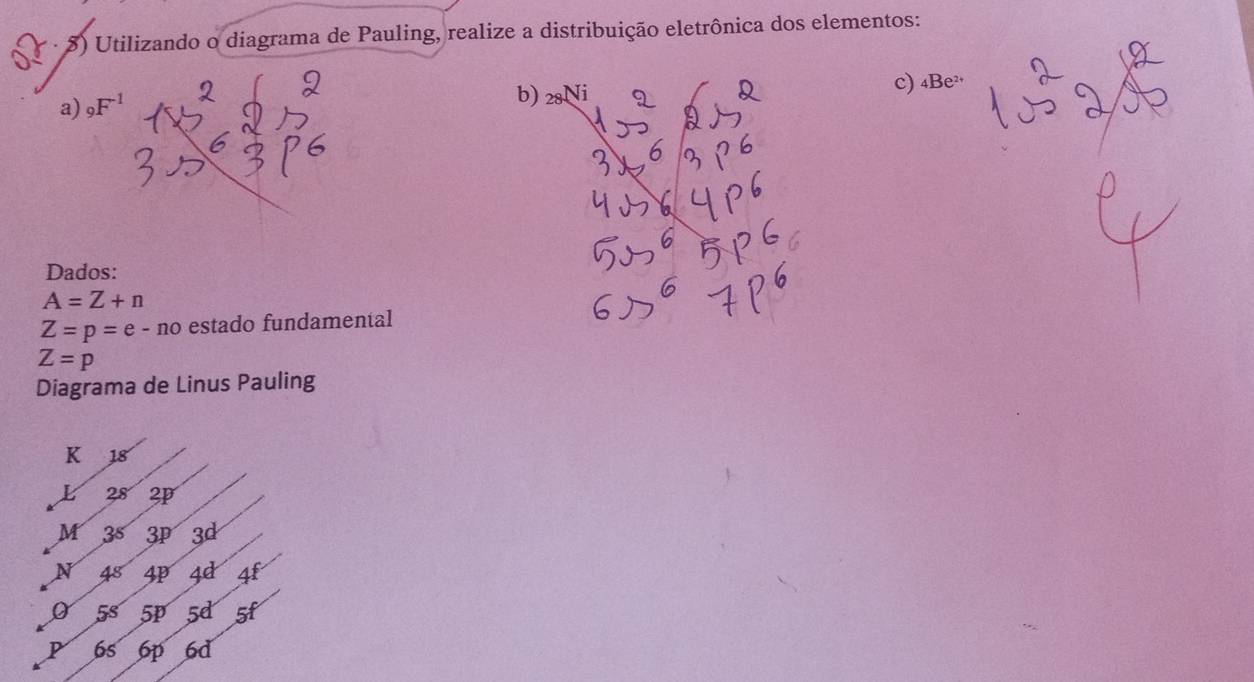 5) Utilizando o diagrama de Pauling, realize a distribuição eletrônica dos elementos:
a) ₉F⁻¹ 1s² 2s²
3s⁶ 3p⁶
b) ₂₈Ni 1s² 2s²
3s⁶ 3p⁶
4s⁶ 4p⁶
5s⁶ 5p⁶
6s⁶ 7p⁶
c) ₄Be²⁺ 1s² 2s²
Dados:
A = Z + n
Z = p = e - no estado fundamental
Z = p
Diagrama de Linus Pauling
K 1s
L 2s 2p
M 3s 3p 3d
N 4s 4p 4d 4f
O 5s 5p 5d 5f
P 6s 6p 6d